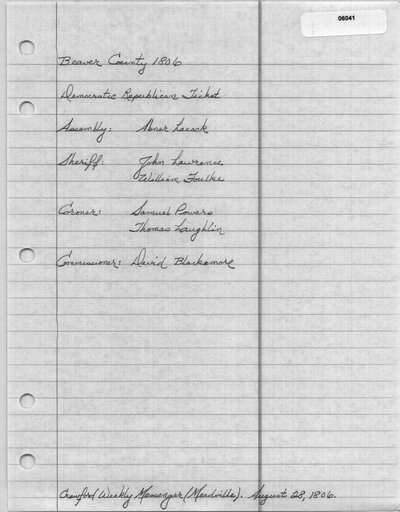 06041
Beaver County 1806
Democratic Republican Ticket
Assembly: Abner Lacock
Sheriff: John Lawrence
William Foulke
Coroner: Samuel Powers
Thomas Laughlin
Commissioner: David Blackamore
Crawford Weekly Messenger (Meadville). August 28, 1806.